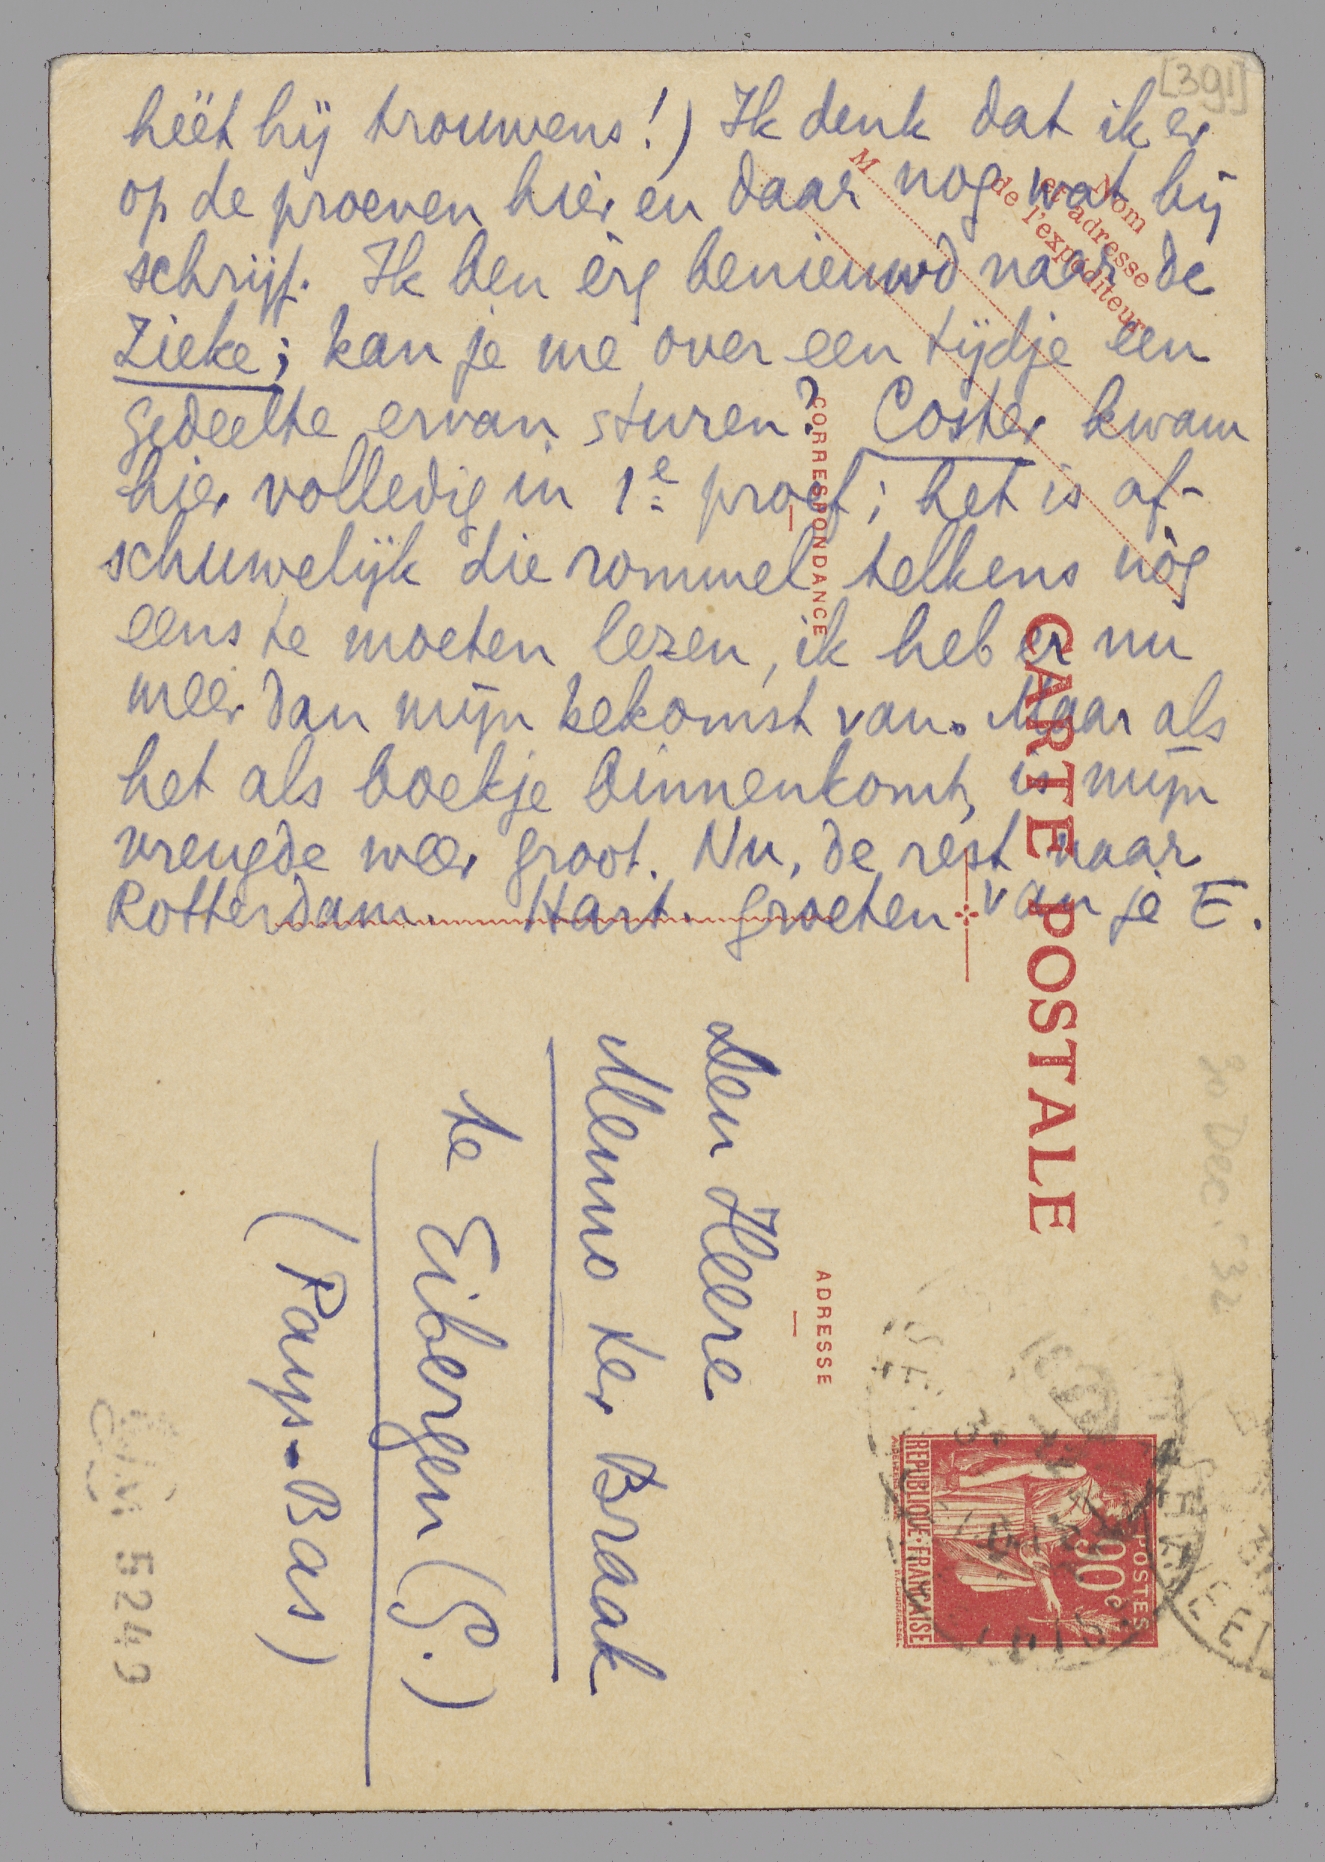 [391]
heèt hij trouwens!) Ik denk dat ik er
op de proeven hier en daar nog wat bij
schrijf. Ik ben èrg benieuwd naar de
Zieke; kan je me over een tijdje een
gedeelte ervan sturen? Coster kwam
hier volledig in 1e proef; het is af-
schuwelijk die rommel telkens nòg
eens te moeten lezen, ik heb er nu
meer dan mijn bekomst van. Maar als
het als boekje binnenkomt, is mijn
vreugde weer groot. Nu, de rest naar
Rotterdam. Hart. groeten van je E.
M
Nom
et adresse
de l'expéditeur
CORRESPONDANCE
CARTE POSTALE
ADRESSE
30 Dec. '32
Den Heere
Menno ter Braak
te Eibergen (G.)
(Pays-Bas)
POSTES
90c
REPUBLIQUE·FRANÇAISE
5249